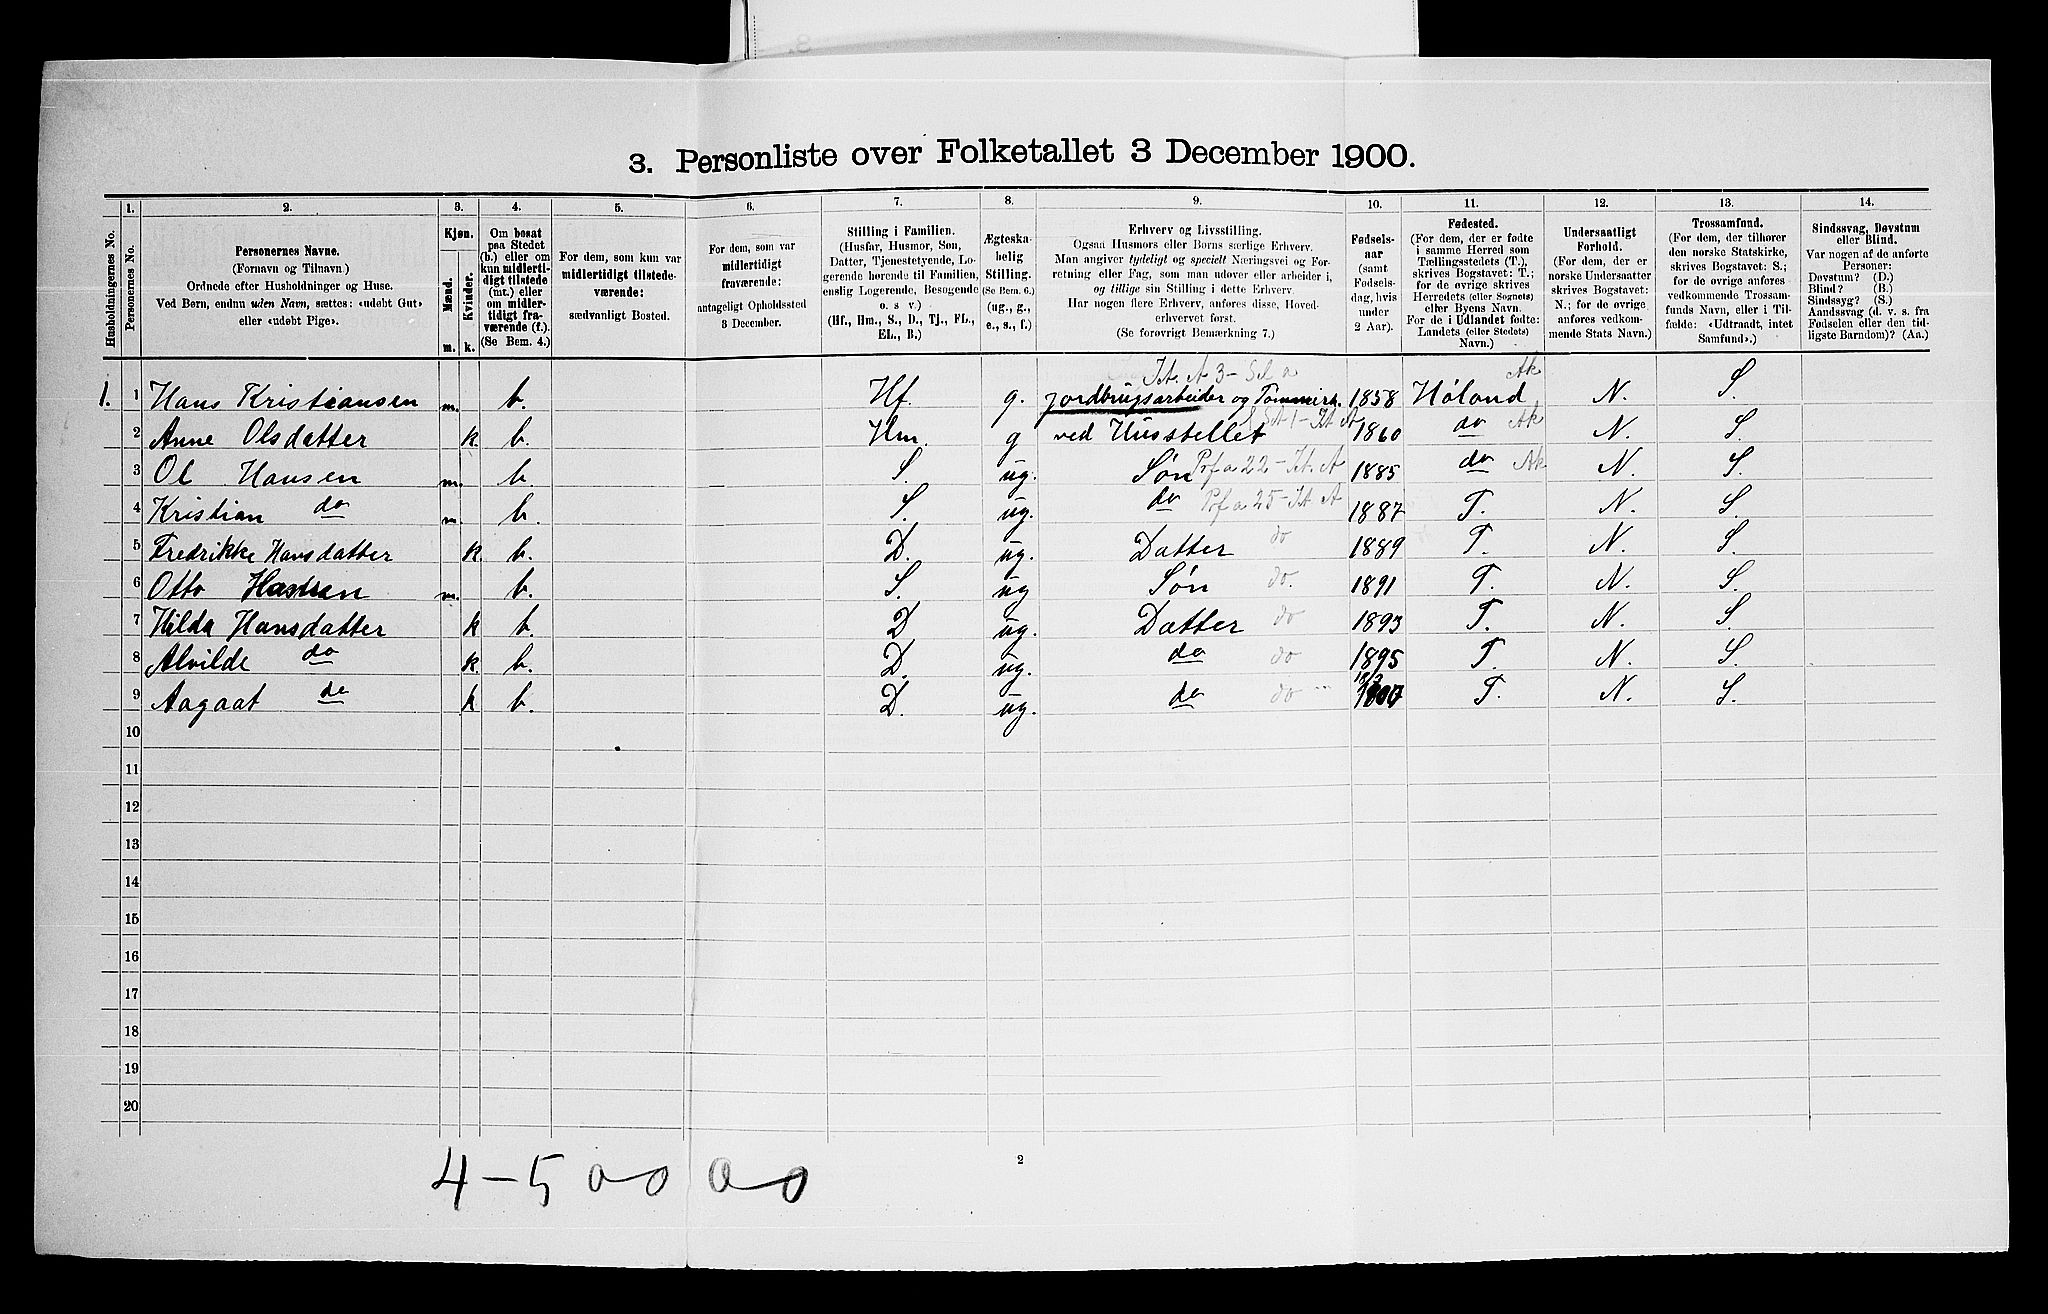 3. Personliste over Folketallet 3 December 1900.
Husholdningernes No.
1. Personernes No.
2. Personernes Navne. (Fornavn og Tilnavn.) Ordnede efter Husholdninger og Huse. Ved Børn, endnu uden Navn, sættes: «udøbt Gut» eller «udøbt Pige».
3. Kjøn. Mænd. m. Kvinder. k.
4. Om bosat paa Stedet (b.) eller om kun midlertidigt tilstede (mt.) eller om midlertidigt fraværende (f.) (Se Bem. 4.)
5. For dem, som kun var midlertidigt tilstedeværende: sædvanligt Bosted.
6. For dem, som var midlertidigt fraværende: antageligt Opholdssted 3 December.
7. Stilling i Familien. (Husfar, Husmor, Søn, Datter, Tjenestetyende, Logerende hørende til Familien, enslig Logerende, Besøgende o. s. v.) (Hf., Hm., S., D., Tj., FL., EL., B.)
8. Ægteskabelig Stilling. (Se Bem. 6.) (ug., g., e., s., f.)
9. Erhverv og Livsstilling. Ogsaa Husmors eller Børns særlige Erhverv. Man angiver tydeligt og specielt Næringsvei og Forretning eller Fag, som man udøver eller arbeider i, og tillige sin Stilling i dette Erhverv. Har nogen flere Erhverv, anføres disse, Hovederhvervet først. (Se forøvrigt Bemærkning 7.)
10. Fødselsaar (samt Fødselsdag, hvis under 2 Aar).
11. Fødested. (For dem, der er fødte i samme Herred som Tællingsstedets (T.), skrives Bogstavet: T.; for de øvrige skrives Herredets (eller Sognets) eller Byens Navn. For de i Udlandet fødte: Landets (eller Stedets) Navn.)
12. Undersaatligt Forhold. (For dem, der er norske Undersaatter skrives Bogstavet: N.; for de øvrige anføres vedkommende Stats Navn.)
13. Trossamfund. (For dem, der tilhører den norske Statskirke, skrives Bogstavet: S.; for de øvrige anføres vedkommende Trossamfunds Navn, eller i Tilfælde: «Udtraadt, intet Samfund».)
14. Sindssvag, Døvstum eller Blind. Var nogen af de anførte Personer: Døvstum? (D.) Blind? (B.) Sindssyg? (S.) Aandssvag (d. v. s. fra Fødselen eller den tidligste Barndom)? (Aa.)
1. 1 Hans Kristiansen m. b. Hf. g. jordbrugsarbeider og Tømmerh. 1858 Høland Ak N. S.
2 Anne Olsdatter k b. Hm. g ved Husstellet 1860 do Ak N. S.
3 Ol Hansen m. b. S. ug. Søn Pf a 22 - It. A 1885 do Ak N. S.
4 Kristian do m. b. S. ug. do Pf a 25 - It A 1887 T. N. S.
5 Fredrikke Hansdatter k. b. D. ug. Datter do 1889 T. N. S.
6 Otto Hansen m. b. S. ug Søn do. 1891 T. N. S.
7 Hilda Hansdatter k b. D ug. Datter do 1893 T. N. S.
8 Alvilde do k. b. D. ug. do do 1895 T. N. S.
9 Aagaat do k b. D. ug. do do 1900 T. N. S.
10
11
12
13
14
15
16
17
18
19
20
2
4-5